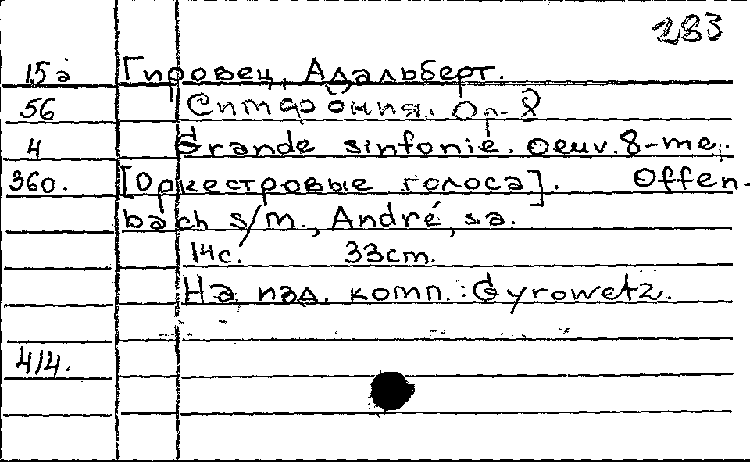 283
15a Гировец, Адальберт.
56 Симфония. Op. 8
4 Grande sinfonie. Oeuv. 8-me.
360. [Оркестровые голоса]. Offen-
bach s/m., André, s.a.
14с. 33cm.
На изд. комп.: Gyrowetz.
414.